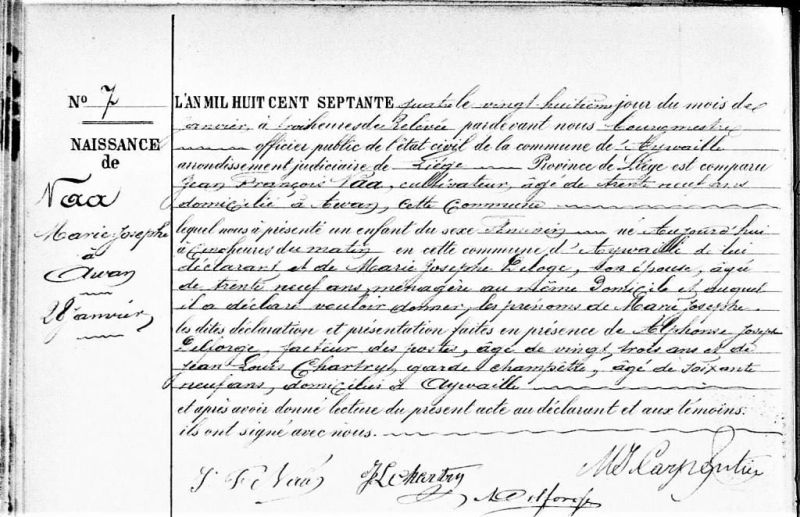 N° 7
NAISSANCE
de
Naa
Marie Josephe
à
Awan
28 janvier
L'AN MIL HUIT CENT SEPTANTE quatre le vingt huitième jour du mois de
janvier, à trois heures de Relevée pardevant nous bourgmestre
officier public de l'état civil de la commune de d'Aywaille
arrondissement judiciaire de Liége Province de Liége est comparu
Jean François Naa, cultivateur, âgé de trente neuf ans
domicilié à Awan, cette Commune
lequel nous à présenté un enfant du sexe féminin né Aujourd'hui
à cinq heures du matin en cette commune d'Aywaille de lui
déclarant et de Marie Josephe Deloge, son épouse, âgée
de trente neuf ans, ménagère au même Domicile et auquel
il a déclaré vouloir donner les prénoms de Marie Josephe
les dites déclaration et présentation faites en présence de Alphonse Joseph
Delforge, facteur des postes, âgé de vingt trois ans et de
Jean Louis Chartry, garde champêtre, âgé de soixante
neuf ans, domiciliés à Aywaille
et après avoir donné lecture du présent acte au déclarant et aux témoins.
ils ont signé avec nous.
J. F. Naa JL Chartry A Delforge MJ Carpentier